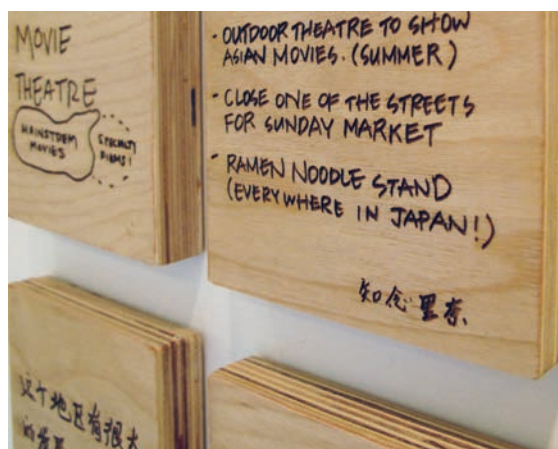 MOVIE
THEATRE
MAINSTREM
MOVIES
SPECIALTY
FILMS!
- OUTDOOR THEATRE TO SHOW
ASIAN MOVIES. (SUMMER)
- CLOSE ONE OF THE STREETS
FOR SUNDAY MARKET
- RAMEN NOODLE STAND
(EVERYWHERE IN JAPAN!)
知念里奈
这个地区有很大